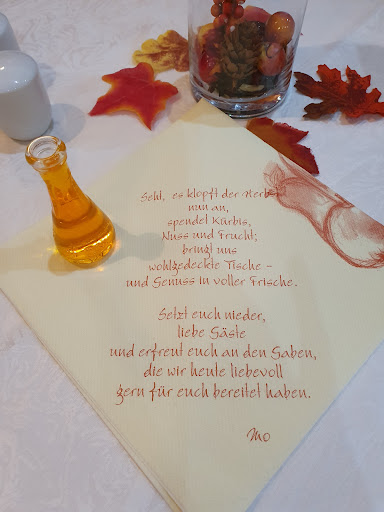 Seht, es klopft der Herbst
nun an,
spendet Kürbis,
Nuss und Frucht;
bringt uns
wohlgedeckte Tische –
und Genuss in voller Frische.
Setzt euch nieder,
liebe Gäste
und erfreut euch an den Gaben,
die wir heute liebevoll
gern für euch bereitet haben.
Mo